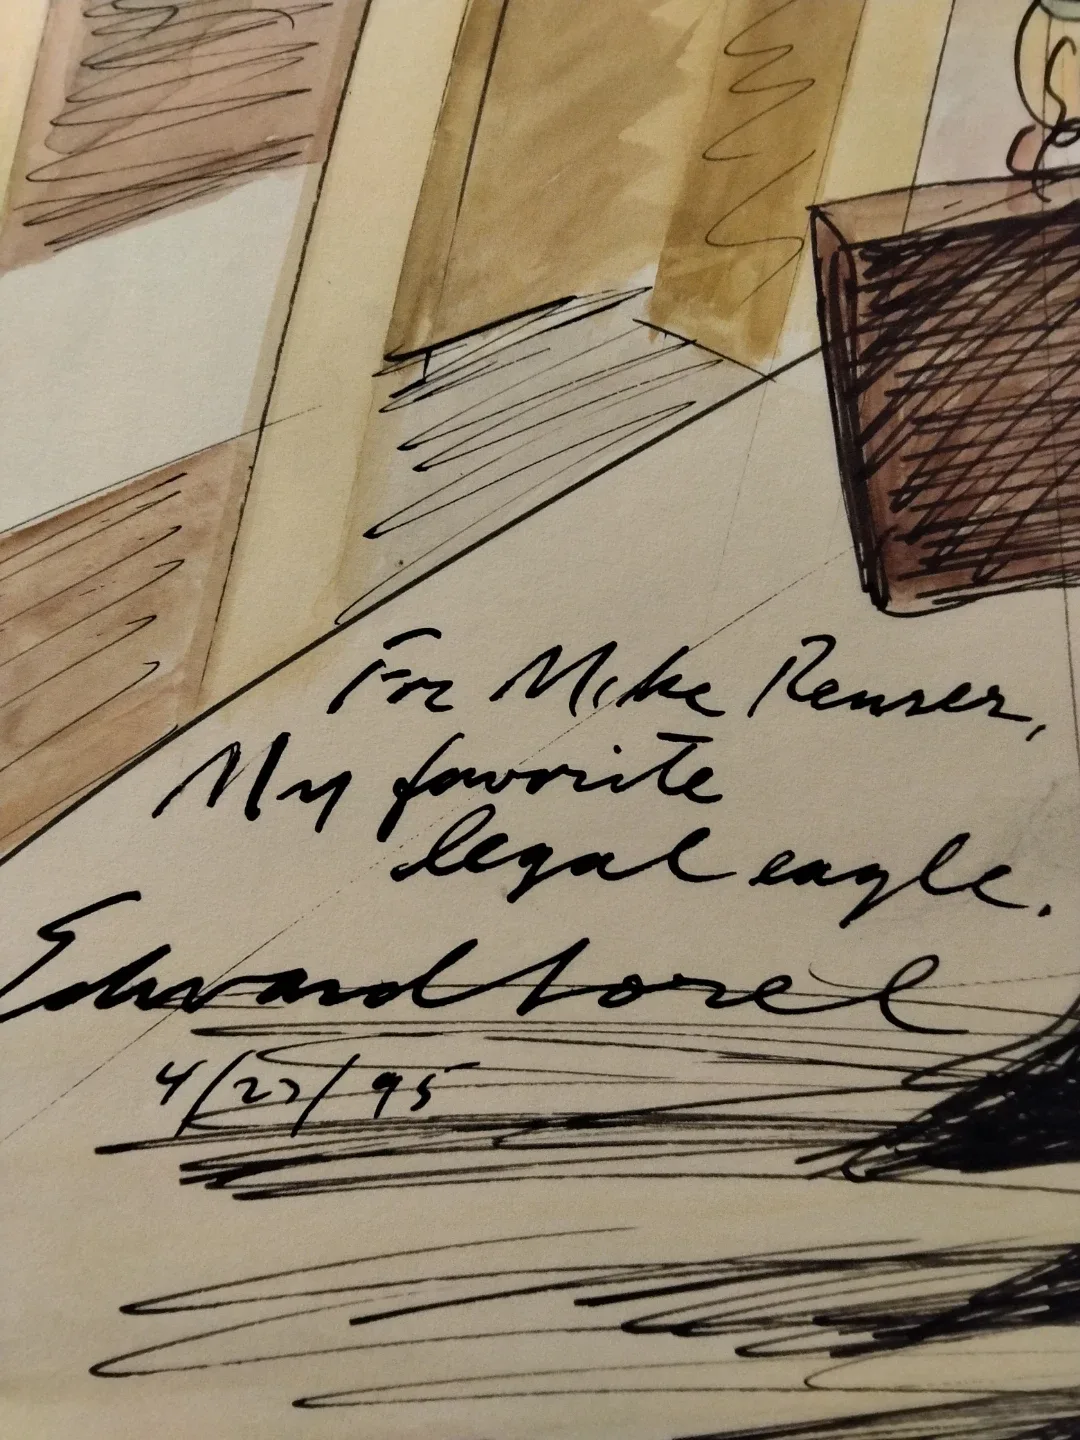 For Mike Renser,
My favorite
legal eagle.
Edward Sorel
4/27/95